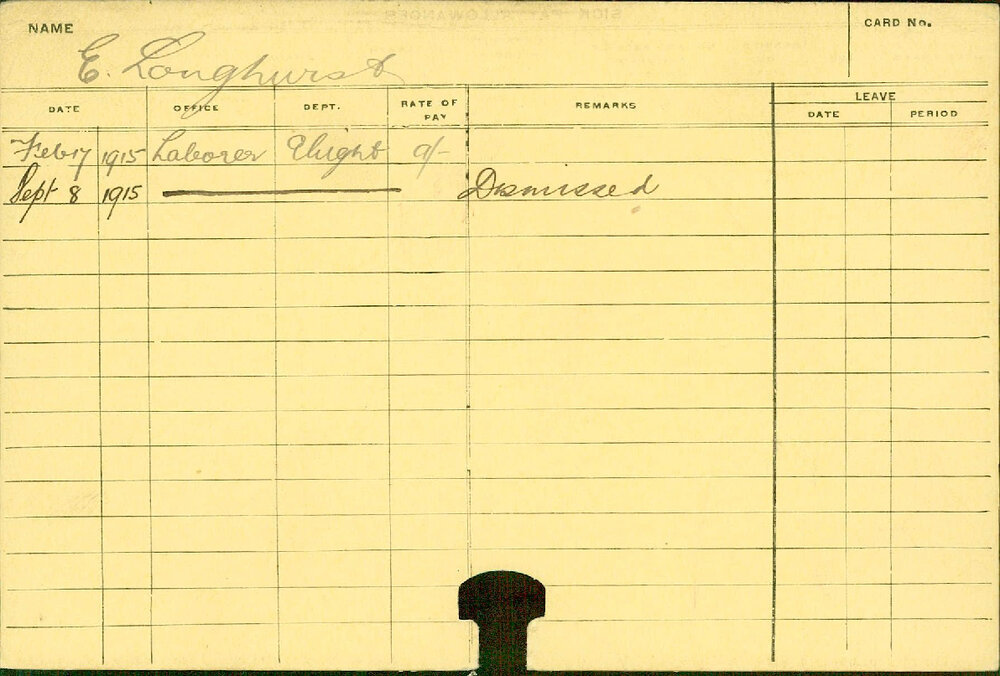 NAME
CARD No.
E. Longhurst
DATE OFFICE DEPT. RATE OF PAY REMARKS LEAVE
DATE PERIOD
Feb 17 1915 Laborer 9/-
Sept 8 1915 Dismissed